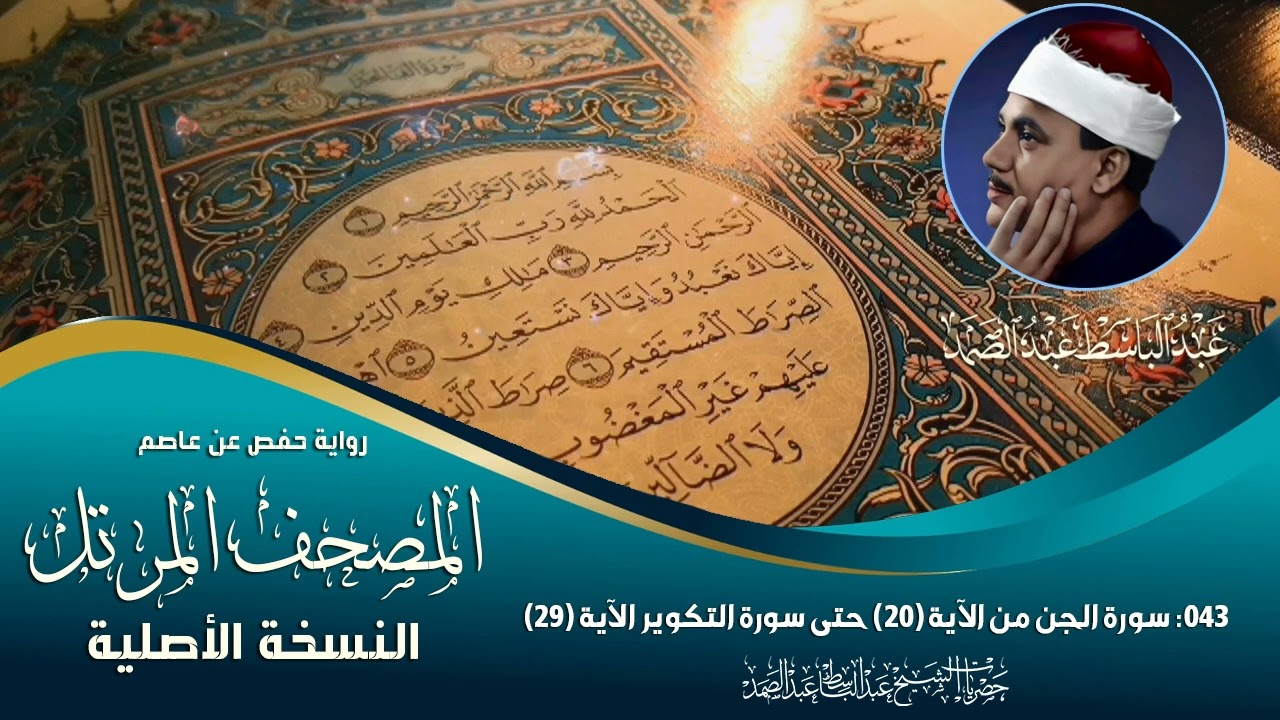 سورة الفاتحة
بِسْمِ ٱللَّهِ ٱلرَّحْمَٰنِ ٱلرَّحِيمِ ١
ٱلْحَمْدُ لِلَّهِ رَبِّ ٱلْعَٰلَمِينَ ٢
ٱلرَّحْمَٰنِ ٱلرَّحِيمِ ٣ مَٰلِكِ يَوْمِ ٱلدِّينِ ٤
إِيَّاكَ نَعْبُدُ وَإِيَّاكَ نَسْتَعِينُ ٥
ٱلصِّرَٰطَ ٱلْمُسْتَقِيمَ ٦ صِرَٰطَ
عَلَيْهِمْ غَيْرِ ٱلْمَغْضُوبِ
وَلَا ٱلضَّآلِّينَ
عَبْدُ الْبَاسِطْ عَبْدُ الصَّمَدْ
رواية حفص عن عاصم
المصحف المرتل
النسخة الأصلية
043: سورة الجن من الآية (20) حتى سورة التكوير الآية (29)
حصريات الشيخ عبدالباسط عبدالصمد